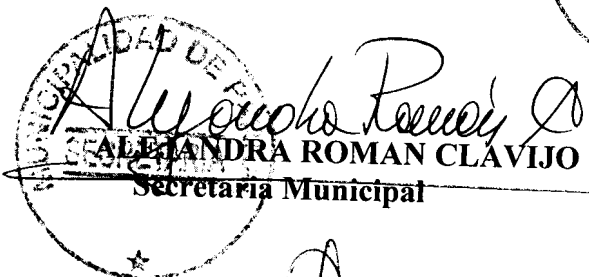 MUNICIPALIDAD DE
Alejandra Román C
ALEJANDRA ROMAN CLAVIJO
Secretaria Municipal